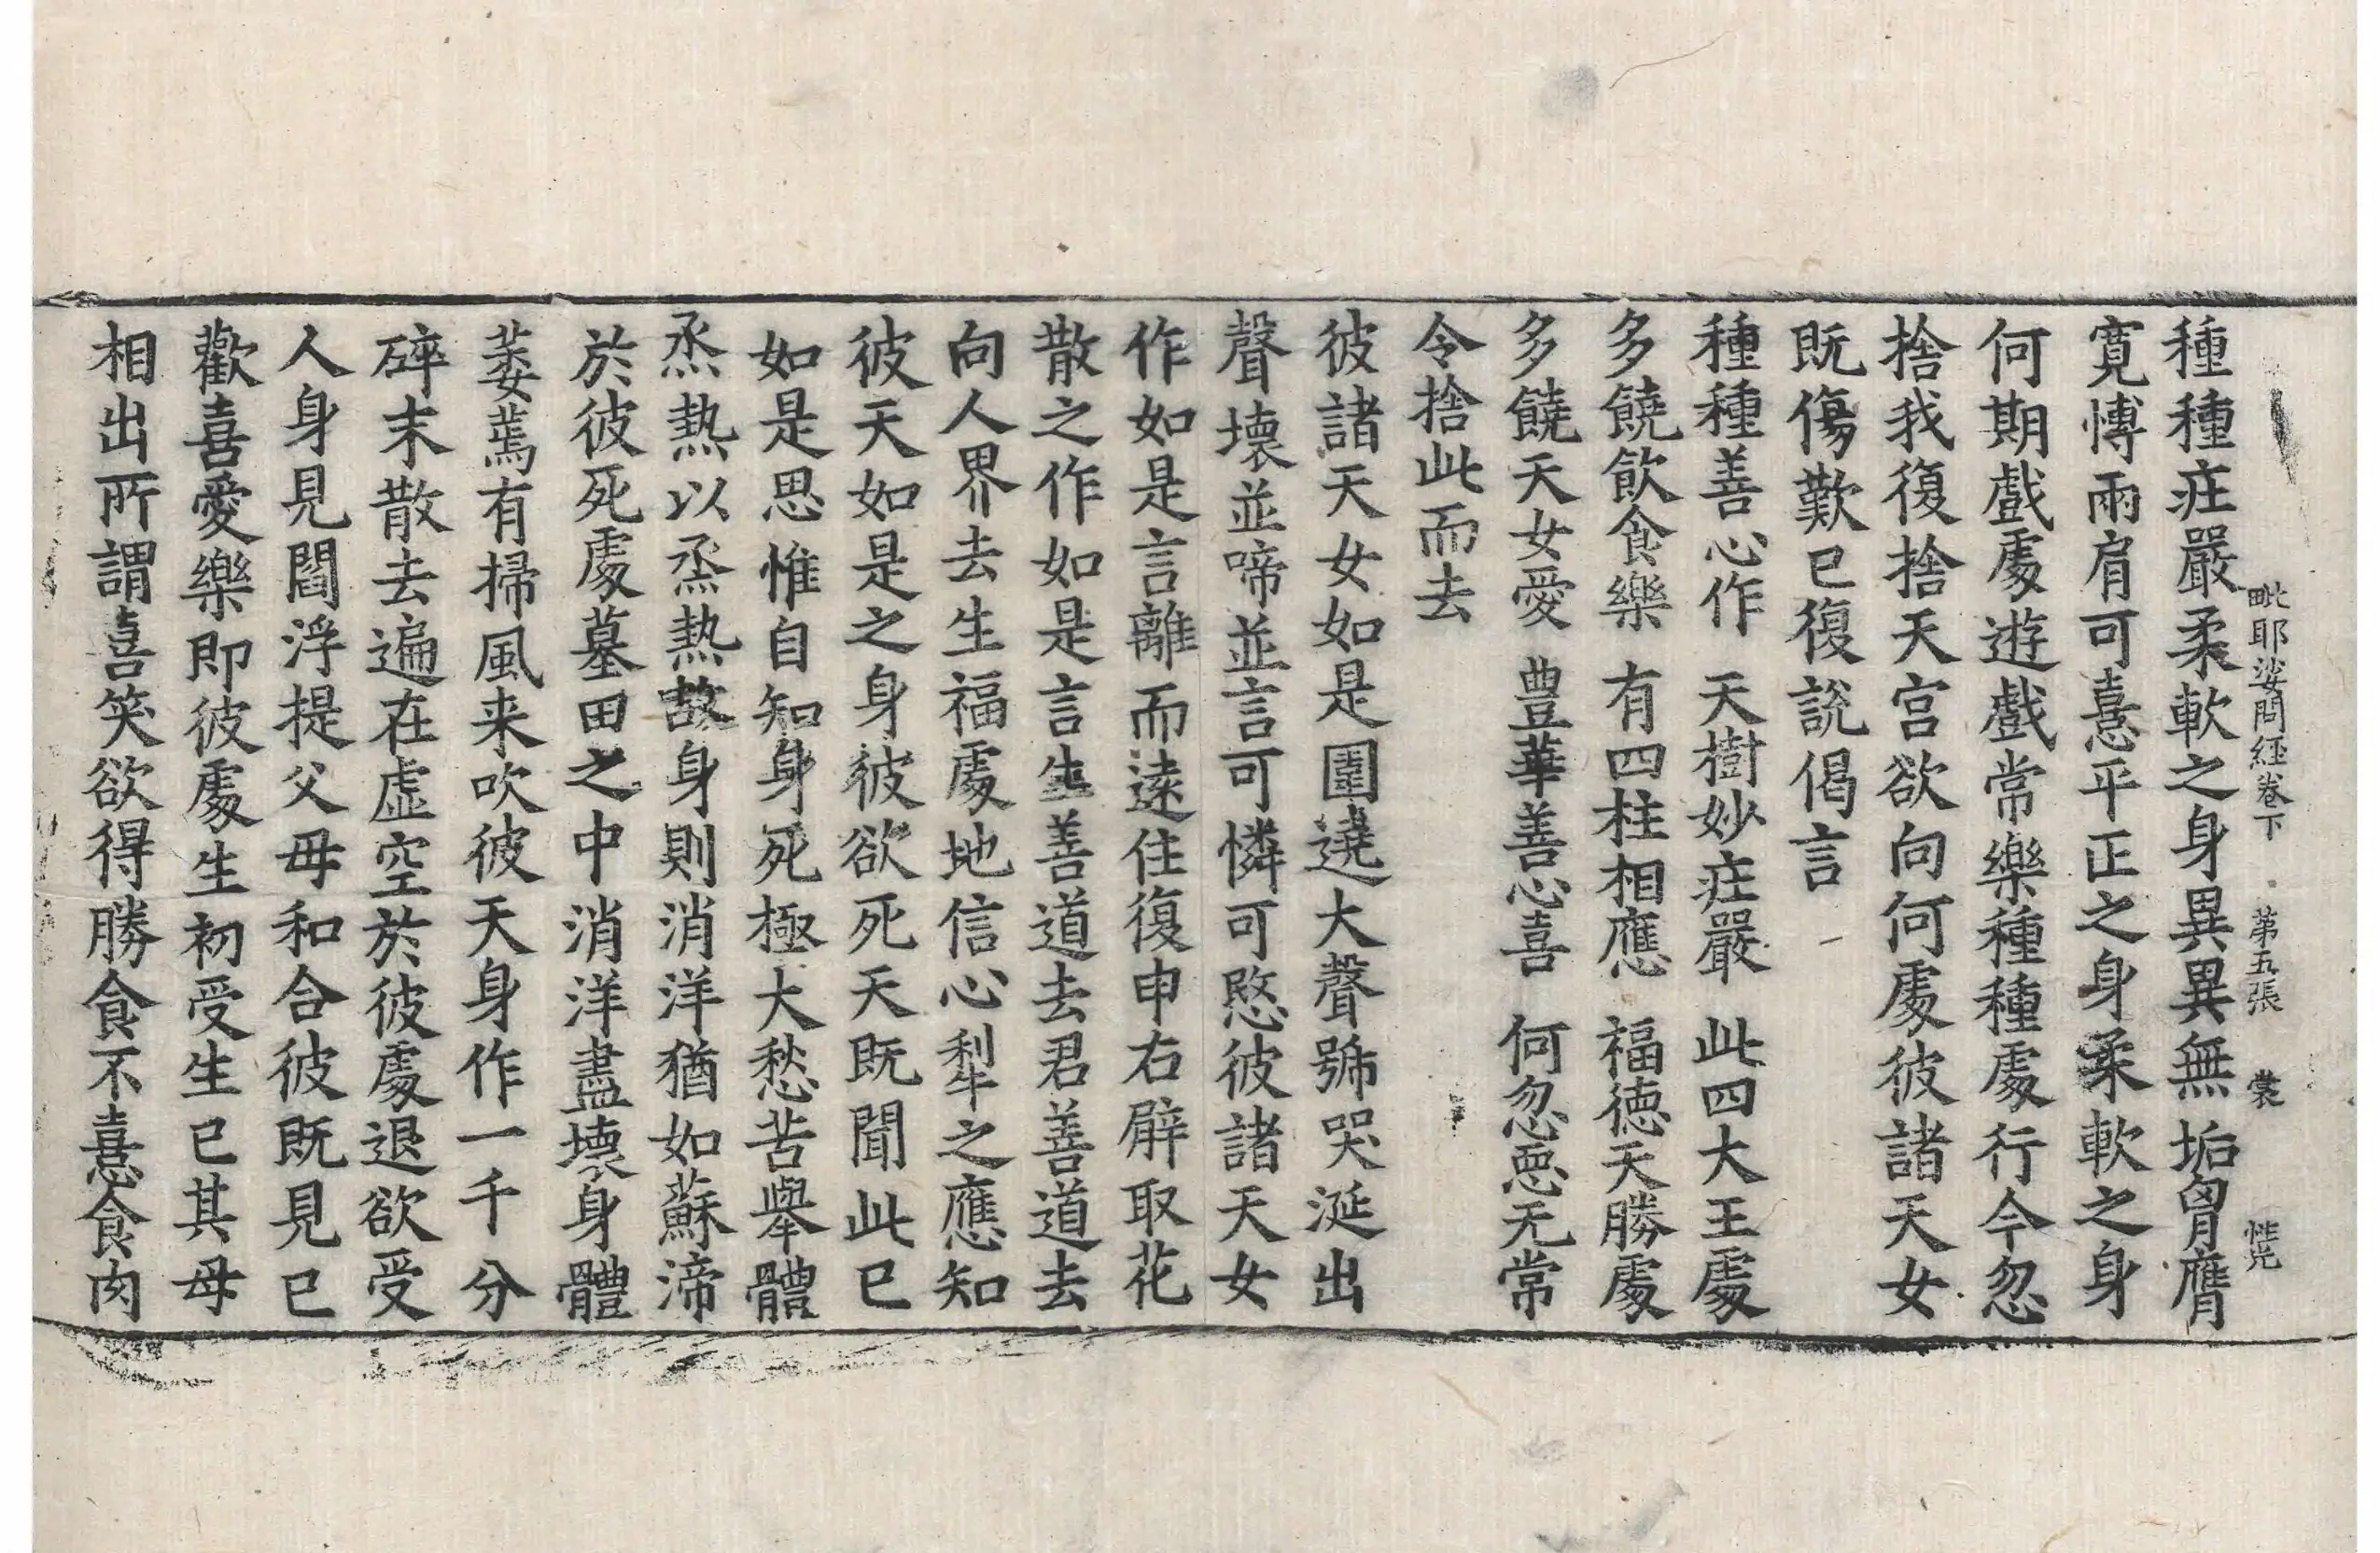 毗耶娑問經卷下　第五張　裳　性光
種種莊嚴柔軟之身異異無垢胷膺
寛慱兩肩可憙平正之身柔軟之身
何期戲處遊戲常樂種種處行今忽
捨我復捨天宮欲向何處彼諸天女
既傷歎已復說偈言
種種善心作　天樹妙莊嚴　此四大王處
多饒飲食樂　有四柱相應　福德天勝處
多饒天女愛　豊華善心喜　何忽惡无常
令捨此而去
彼諸天女如是圍遶大聲號哭涎出
聲壞並啼並言可憐可愍彼諸天女
作如是言離而遠住復申右臂取花
散之作如是言生善道去君善道去
向人界去生福處地信心犁之應知
彼天如是之身彼欲死天既聞此已
如是思惟自知身死極大愁苦舉體
烝熱以烝熱故身則消洋猶如蘇渧
於彼死處墓田之中消洋盡壞身體
萎蔫有掃風来吹彼天身作一千分
碎末散去遍在虛空於彼處退欲受
人身見閻浮提父母和合彼既見已
歡喜愛樂即彼處生初受生已其母
相出所謂喜笑欲得勝食不憙食肉